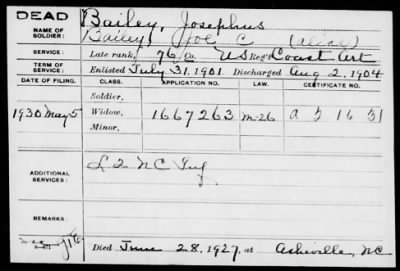 DEAD
NAME OF SOLDIER: Bailey, Josephus
Bailey, Joe C (alias)
SERVICE: Late rank, 76 Co. U S Reg't Coast Art
TERM OF SERVICE: Enlisted July 31, 1901 Discharged Aug 2, 1904
DATE OF FILING. CLASS. APPLICATION NO. LAW. CERTIFICATE NO.
Soldier,
1930 May 5 Widow, 1667263 M-26 a 5 16 31
Minor,
ADDITIONAL SERVICES: L 2 NC Inf
REMARKS:
Died June 28, 1927, at Asheville, NC